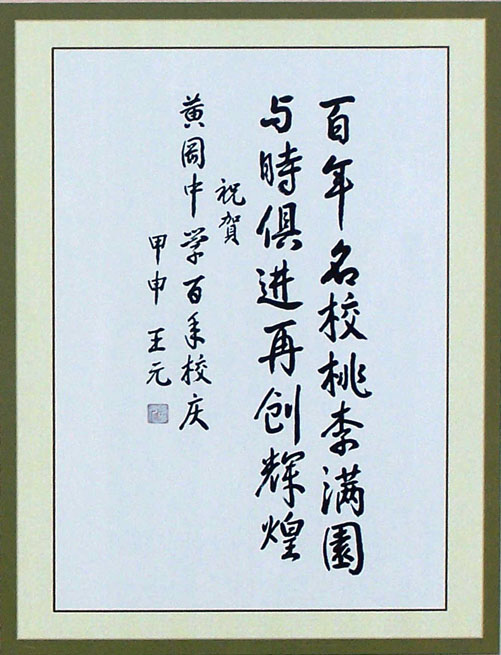 百年名校桃李满園
与時俱进再创辉煌
祝贺
黄岡中学百年校庆
甲申 王元